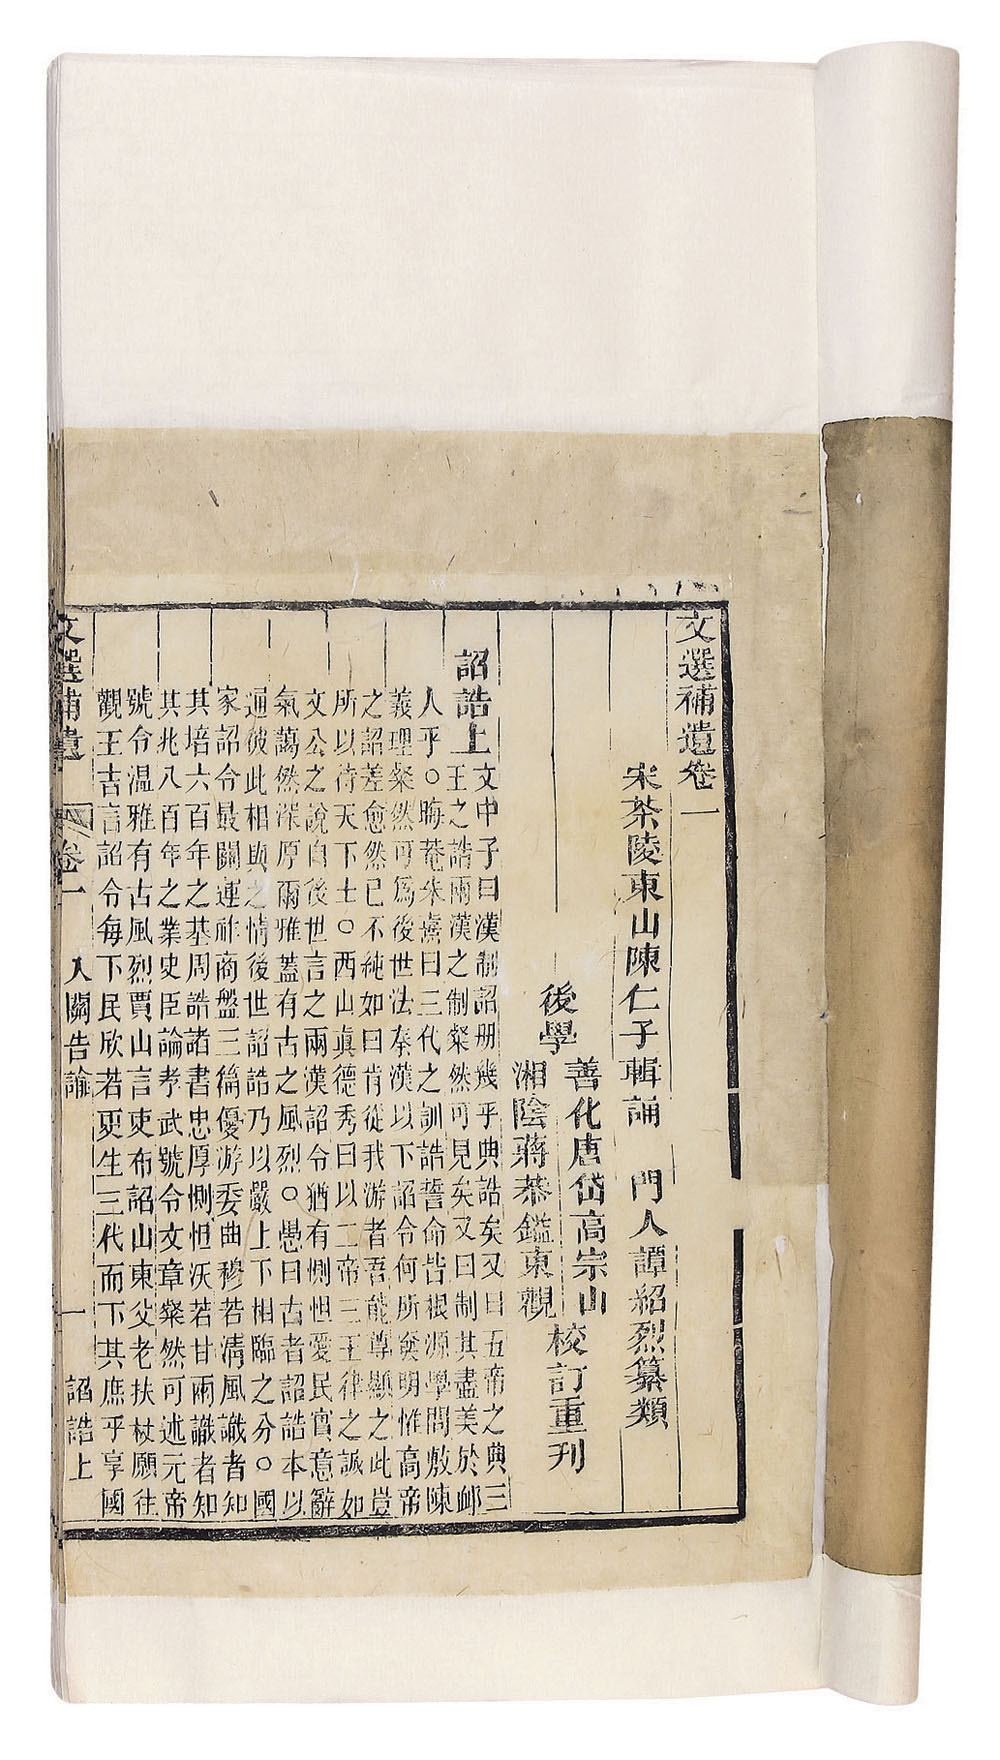 文選補遺卷一
宋茶陵東山陳仁子輯誦　門人譚紹烈纂類
後學
善化唐岱高宗山
湘陰蔣恭鎰東觀
校訂重刊
詔誥上
文中子曰漢制詔册幾乎典誥矣又曰五帝之典三
王之誥兩漢之制粲然可見矣又曰制其盡美於䘏
人乎○晦菴朱熹曰三代之訓誥誓命皆根源學問敷陳
義理粲然可爲後世法秦漢以下詔令何所發明惟高帝
之詔差愈然已不純如曰肯從我游者吾能尊顯之此豈
所以待天下士○西山眞德秀曰以二帝三王律之誠如
文公之說自後世言之兩漢詔令猶有惻怛愛民實意辭
氣藹然深厚爾雅蓋有古之風烈○愚曰古者詔誥本以
通彼此相與之情後世詔誥乃以嚴上下相臨之分○國
家詔令最關運祚商盤三篇優游委曲穆若清風識者知
其培六百年之基周誥諸書忠厚惻怛沃若甘雨識者知
其兆八百年之業史臣論孝武號令文章粲然可述元帝
號令溫雅有古風烈賈山言吏布詔山東父老扶杖願往
觀王吉言詔令每下民欣若更生三代而下其庶乎享國
文選補遺
卷一
入關告諭
一
詔誥上